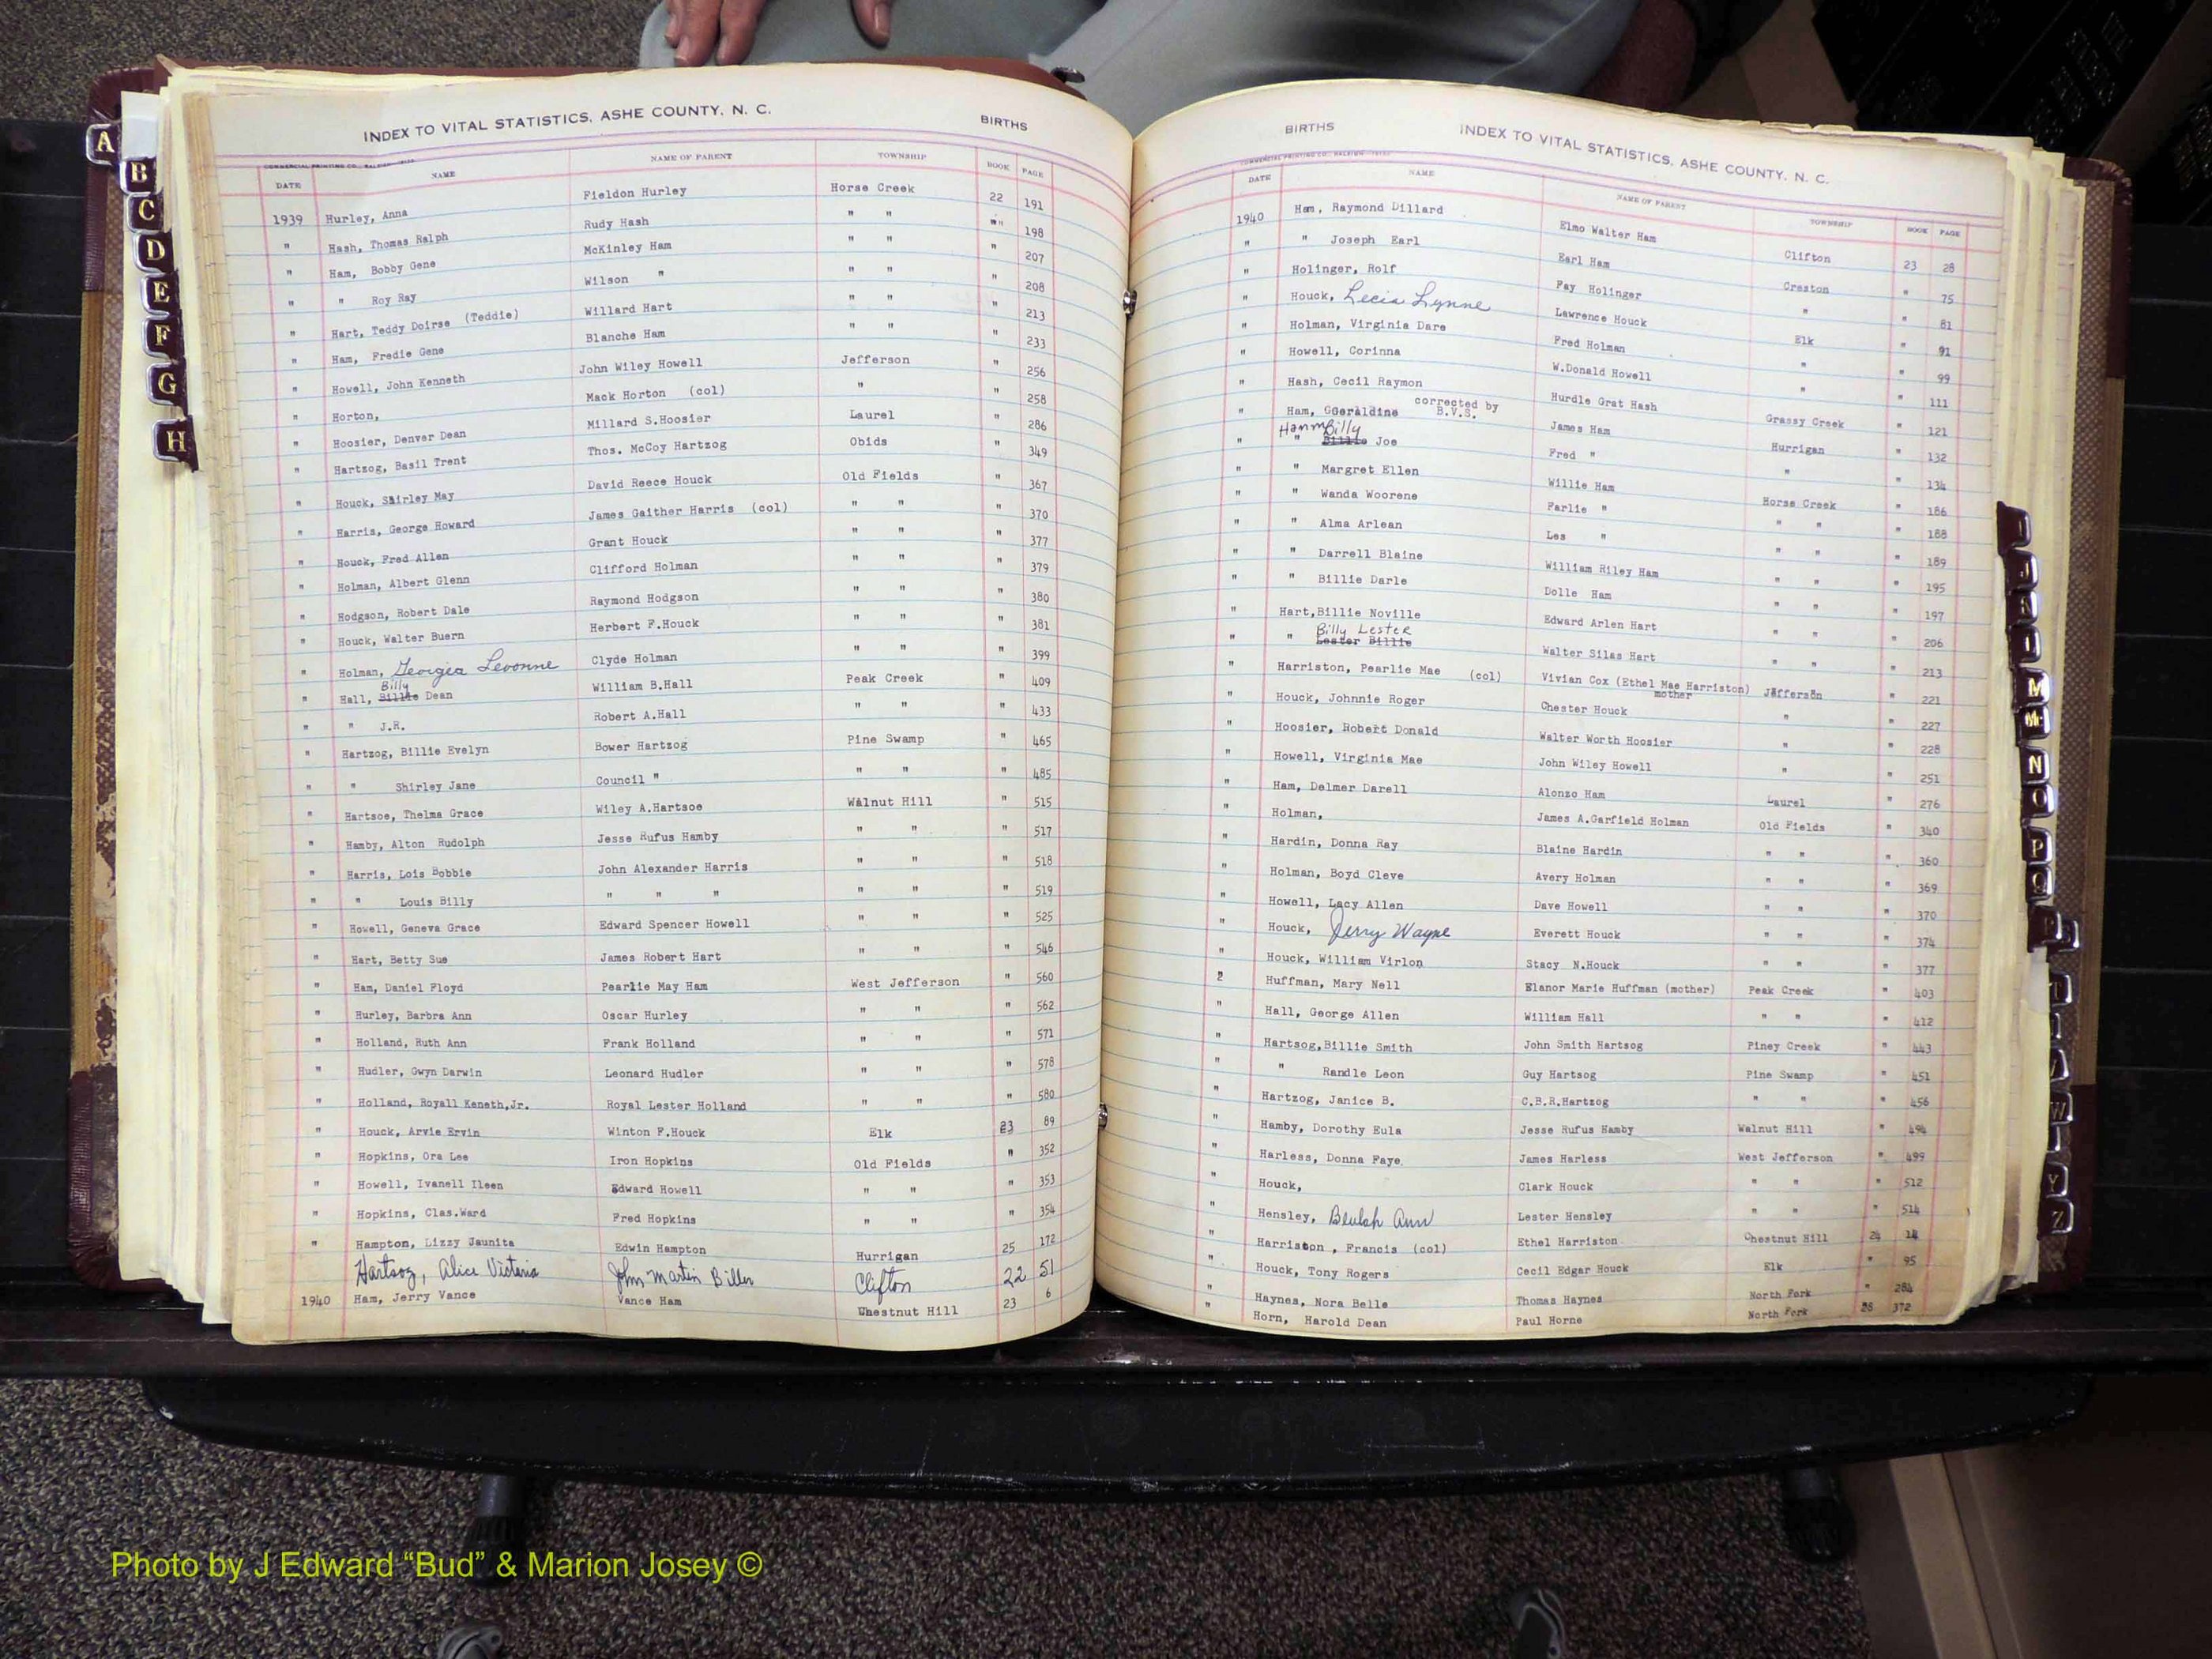 INDEX TO VITAL STATISTICS, ASHE COUNTY, N. C. BIRTHS
COMMERCIAL PRINTING CO., RALEIGH
DATE NAME NAME OF PARENT TOWNSHIP BOOK PAGE
1939 Hurley, Anna Fieldon Hurley Horse Creek 22 191
" Hash, Thomas Ralph Rudy Hash " " " 198
" Ham, Bobby Gene McKinley Ham " " " 207
" " Roy Ray Wilson " " " " 208
" Hart, Teddy Doirse (Teddie) Willard Hart " " " 213
" Ham, Fredie Gene Blanche Ham " " " 233
" Howell, John Kenneth John Wiley Howell Jefferson " 256
" Horton, Mack Horton (col) " " 258
" Hoosier, Denver Dean Millard S.Hoosier Laurel " 286
" Hartzog, Basil Trent Thos. McCoy Hartzog Obids " 349
" Houck, Shirley May David Reece Houck Old Fields " 367
" Harris, George Howard James Gaither Harris (col) " " " 370
" Houck, Fred Allen Grant Houck " " " 377
" Holman, Albert Glenn Clifford Holman " " " 379
" Hodgson, Robert Dale Raymond Hodgson " " " 380
" Houck, Walter Buern Herbert F.Houck " " " 381
" Holman, Georgia Levonne Clyde Holman " " " 399
" Hall, Billy Billie Dean William B.Hall Peak Creek " 409
" " J.R. Robert A.Hall " " " 433
" Hartzog, Billie Evelyn Bower Hartzog Pine Swamp " 465
" " Shirley Jane Council " " " " 485
" Hartsoe, Thelma Grace Wiley A.Hartsoe Walnut Hill " 515
" Hamby, Alton Rudolph Jesse Rufus Hamby " " " 517
" Harris, Lois Bobbie John Alexander Harris " " " 518
" " Louis Billy " " " " " " 519
" Howell, Geneva Grace Edward Spencer Howell " " " 525
" Hart, Betty Sue James Robert Hart " " " 546
" Ham, Daniel Floyd Pearlie May Ham West Jefferson " 560
" Hurley, Barbra Ann Oscar Hurley " " " 562
" Holland, Ruth Ann Frank Holland " " " 571
" Hudler, Gwyn Darwin Leonard Hudler " " " 578
" Holland, Royall Keneth,Jr. Royal Lester Holland " " " 580
" Houck, Arvie Ervin Winton F.Houck Elk 23 89
" Hopkins, Ora Lee Iron Hopkins Old Fields " 352
" Howell, Ivanell Ileen Edward Howell " " " 353
" Hopkins, Clas.Ward Fred Hopkins " " " 354
" Hampton, Lizzy Jaunita Edwin Hampton Hurrigan 25 172
Hartsog, Alice Victoria John Martin Biller Clifton 22 51
1940 Ham, Jerry Vance Vance Ham Chestnut Hill 23 6
BIRTHS INDEX TO VITAL STATISTICS, ASHE COUNTY, N. C.
COMMERCIAL PRINTING CO., RALEIGH
DATE NAME NAME OF PARENT TOWNSHIP BOOK PAGE
1940 Ham, Raymond Dillard Elmo Walter Ham Clifton 23 28
" " Joseph Earl Earl Ham Creston " 75
" Holinger, Rolf Fay Holinger " " 81
" Houck, Lecia Lynne Lawrence Houck Elk " 91
" Holman, Virginia Dare Fred Holman " " 99
" Howell, Corinna W.Donald Howell " " 111
" Hash, Cecil Raymon Hurdle Grat Hash Grassy Creek " 121
corrected by
" Ham, GGeraldine B.V.S. James Ham Hurrigan " 132
Hamm Billy
" " Billie Joe Fred " " " 134
" " Margret Ellen Willie Ham Horse Creek " 186
" " Wanda Woorene Farlie " " " " 188
" " Alma Arlean Les " " " " 189
" " Darrell Blaine William Riley Ham " " " 195
" " Billie Darle Dolle Ham " " " 197
" Hart,Billie Noville Edward Arlen Hart " " " 206
Billy Lester
" " Lester Billie Walter Silas Hart " " " 213
" Harriston, Pearlie Mae (col) Vivian Cox (Ethel Mae Harriston) mother Jefferson " 221
" Houck, Johnnie Roger Chester Houck " " 227
" Hoosier, Robert Donald Walter Worth Hoosier " " 228
" Howell, Virginia Mae John Wiley Howell " " 251
" Ham, Delmer Darell Alonzo Ham Laurel " 276
" Holman, James A.Garfield Holman Old Fields " 340
" Hardin, Donna Ray Blaine Hardin " " " 360
" Holman, Boyd Cleve Avery Holman " " " 369
" Howell, Lacy Allen Dave Howell " " " 370
" Houck, Jerry Wayne Everett Houck " " " 374
" Houck, William Virlon Stacy N.Houck " " " 377
2 Huffman, Mary Nell Elanor Marie Huffman (mother) Peak Creek " 403
" Hall, George Allen William Hall " " " 412
" Hartsog,Billie Smith John Smith Hartsog Piney Creek " 443
" " Randle Leon Guy Hartsog Pine Swamp " 451
" Hartzog, Janice B. C.B.R.Hartzog " " " 456
" Hamby, Dorothy Eula Jesse Rufus Hamby Walnut Hill " 494
" Harless, Donna Faye James Harless West Jefferson " 499
" Houck, Clark Houck " " " 512
" Hensley, Beulah Ann Lester Hensley " " " 514
" Harriston, Francis (col) Ethel Harriston Chestnut Hill 24 14
" Houck, Tony Rogers Cecil Edgar Houck Elk " 95
" Haynes, Nora Belle Thomas Haynes North Fork " 284
" Horn, Harold Dean Paul Horne North Fork 372
A
B
C
D
E
F
G
H
M
Mc
N
O
P
Q
T
W
Y
Z
Photo by J Edward “Bud” & Marion Josey ©